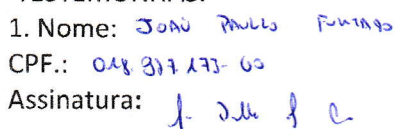 1. Nome: JOAO PAULO FURTADO
CPF.: 018.987.173-00
Assinatura: